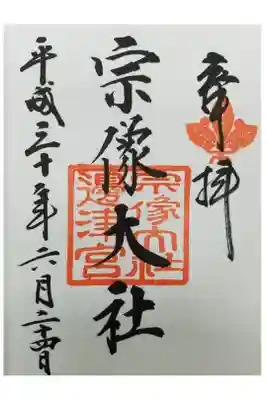 奉拝
宗像大社
宗像大社
邊津宮
平成三十年六月二十四日